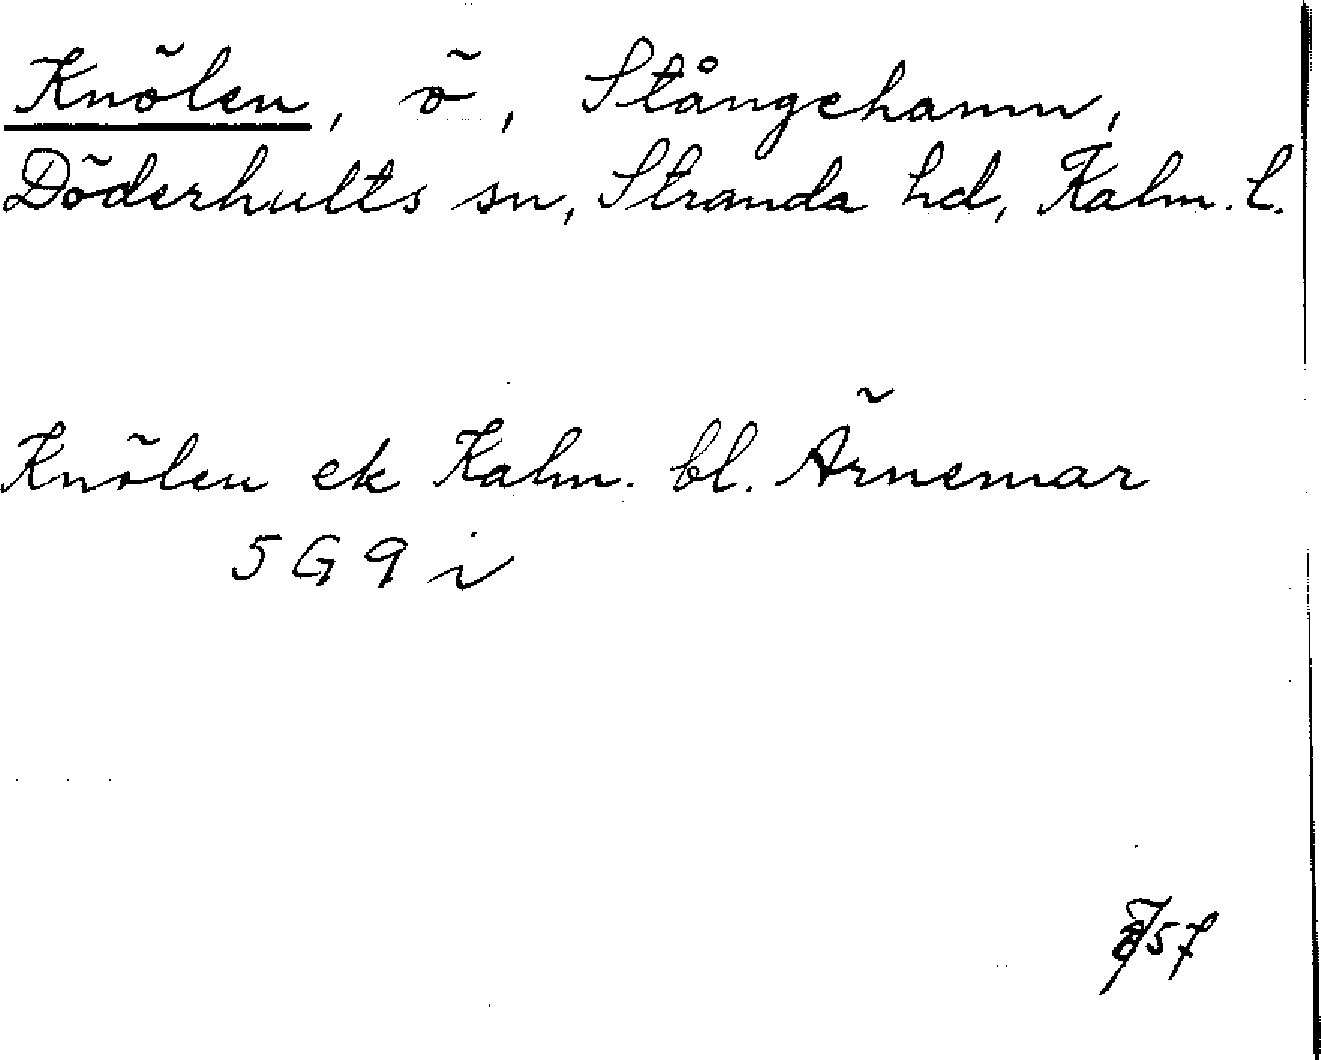 Knölen, ö, Stångehamn,
Döderhults sn, Stranda hd, Kalm. l.
Knölen ek Kalm. bl. Ärnemar
5 G 9 i